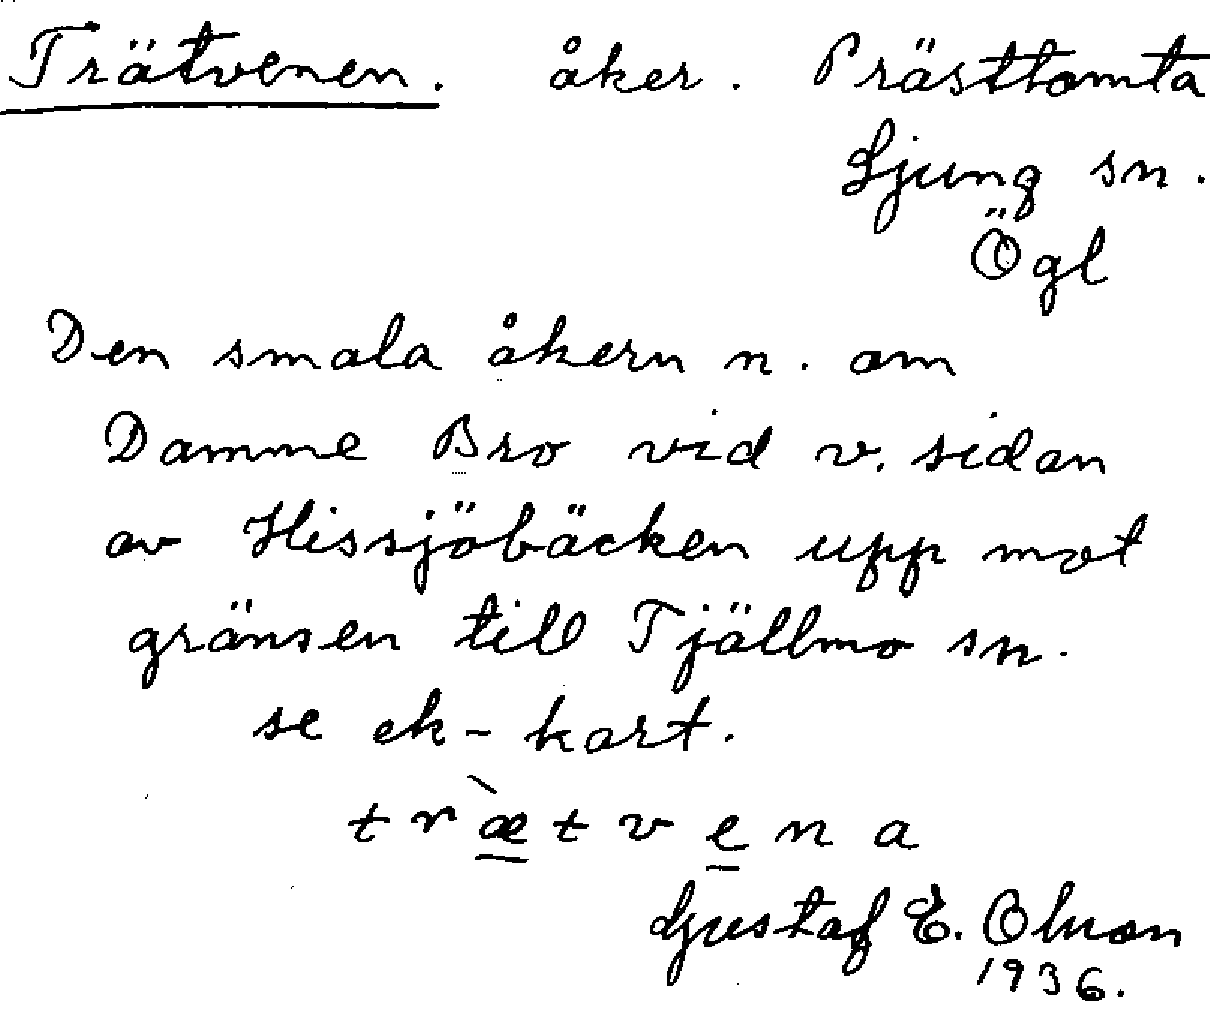 Trätvenen. åker. Prästtomta
Ljung sn.
Ögl
Den smala åkern n. om
Damme Bro vid v. sidan
av Hissjöbäcken upp mot
gränsen till Tjällmo sn.
se ek-kart.
træ̀tvena
Gustaf E. Olson
1936.